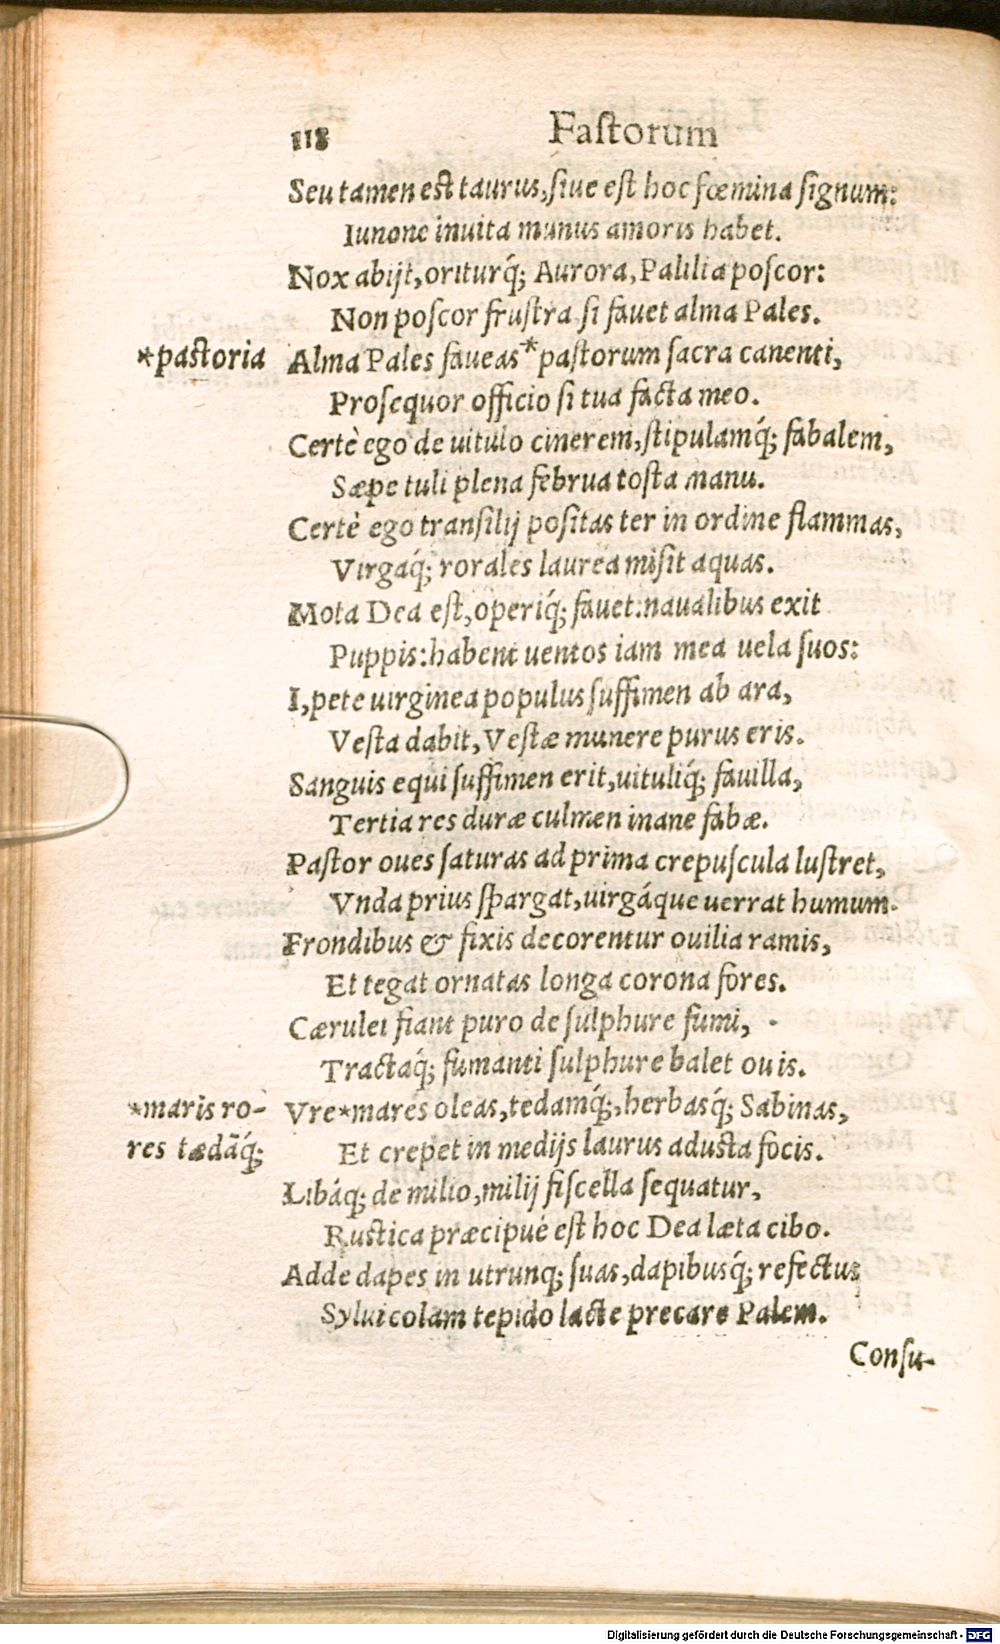 118 Fastorum
Seu tamen est taurus, siue est hoc fœmina signum:
Iunone inuita munus amoris habet.
Nox abijt, oriturq́; Aurora, Palilia poscor:
Non poscor frustra si fauet alma Pales.
*pastoria Alma Pales faueas *pastorum sacra canenti,
Prosequor officio si tua facta meo.
Certè ego de uitulo cinerem, stipulamq́; fabalem,
Sæpe tuli plena februa tosta manu.
Certè ego transilij positas ter in ordine flammas,
Virgaq́; rorales laurea misit aquas.
Mota Dea est, operiq́; fauet: naualibus exit
Puppis: habent uentos iam mea uela suos:
I, pete uirginea populus suffimen ab ara,
Vesta dabit, Vestæ munere purus eris.
Sanguis equi suffimen erit, uituliq́; fauilla,
Tertia res duræ culmen inane fabæ.
Pastor oues saturas ad prima crepuscula lustret,
Vnda prius spargat, uirgáque uerrat humum.
Frondibus & fixis decorentur ouilia ramis,
Et tegat ornatas longa corona fores.
Cærulei fiant puro de sulphure fumi,
Tractaq́; fumanti sulphure balet ouis.
*maris ro- Vre *mares oleas, tedamq́;, herbasq́; Sabinas,
res tædãq́; Et crepet in medijs laurus adusta focis.
Libáq; de milio, milij fiscella sequatur,
Rustica præcipuè est hoc Dea læta cibo.
Adde dapes in utrunq; suas, dapibusq́; refectus
Syluicolam tepido lacte precare Palem.
Consu-
Digitalisierung gefördert durch die Deutsche Forschungsgemeinschaft - DFG